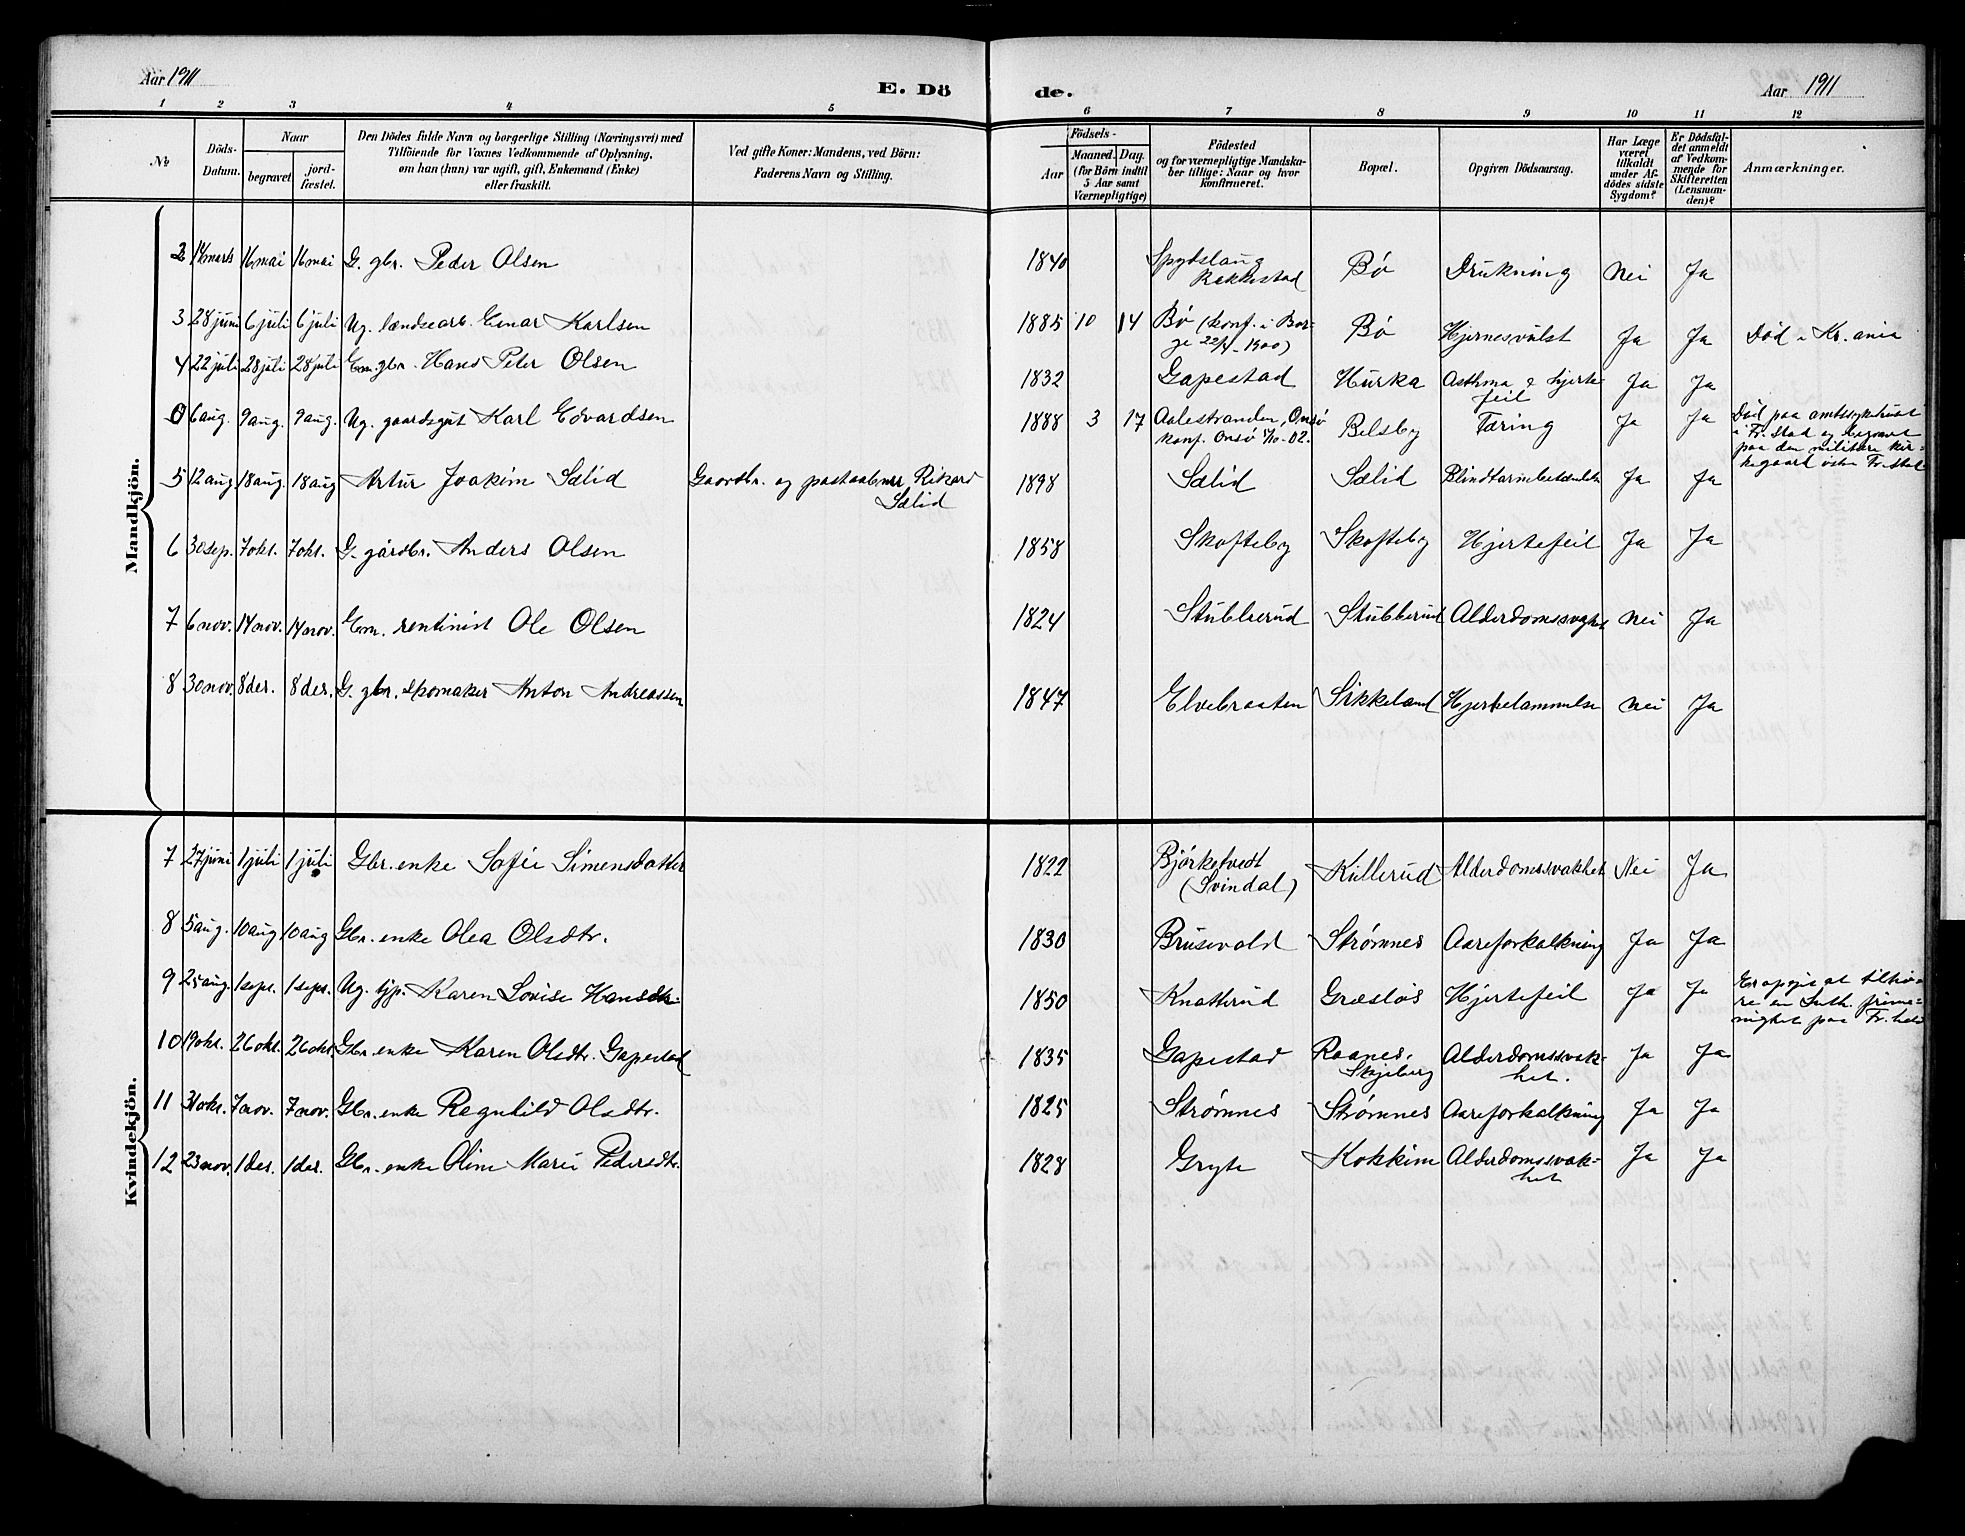 Aar 1911
E. Dö
de.
Aar 1911
1 2 3 4 5 6 7 8 9 10 11 12
No
Döds-
Datum.
Naar
begravet
jord-
fæstet.
Den Dödes fulde Navn og borgerlige Stilling (Næringsvei) med
Tilföiende for Voxnes Vedkommende af Oplysning,
om han (hun) var ugift, gift, Enkemand (Enke)
eller fraskilt.
Ved gifte Koner: Mandens, ved Börn:
Faderens Navn og Stilling.
Födsels-
Aar
Maaned. Dag.
(for Börn indtil
5 Aar samt
Værnepligtige)
Födested
og for værnepligtige Mandska-
ber tillige: Naar og hvor
konfirmeret.
Bopæl.
Opgiven Dödsaarsag.
Har Læge
været
tilkaldt
under Af-
dödes sidste
Sygdom?
Er Dödsfal-
det anmeldt
af Vedkom-
mende for
Skifteretten
(Lensman-
den)?
Anmærkninger.
Mandkjön.
2 14 marts 16 mai 16 mai G. gbr. Peder Olsen 1840 Spydslaug Rakkestad Bö Drukning Nei Ja
3 28 juni 6 juli 6 juli Ug. landsearb. Einar Karlsen 1885 10 14 Bö (konf. i Bor-
ge 22/4 - 1900) Bö Hjernesvulst Ja Ja Död i Kr.ania
4 22 juli 28 juli 28 juli Em. gbr. Hans Peter Olsen 1832 Gapestad Hurka Asthma & hjerte
feil Ja Ja
0 6 aug. 9 aug. 9 aug. Ug. gaardsgut Karl Edvardsen 1888 3 17 Aalestranden, Onsö
konf. Onsö 02. Belsby Tæring Ja Ja Död paa amtssykehuset
i Fr.stad og begravet
paa den militære kir-
kegaard östen Fr.stad
5 12 aug. 18 aug. 18 aug Artur Joakim Sælid Gaardbr. og postaabner Rikard
Sælid 1898 Sælid Sælid Blindtarmbetændelse Ja Ja
6 30 sep. 7 okt. 7 okt. G. gårdbr. Anders Olsen 1858 Skofteby Skofteby Hjertefeil Ja Ja
7 6 nov. 14 nov. 14 nov. Em. rentinist Ole Olsen 1824 Stubberud Stubberud Alderdomssvaghet Nei Ja
8 30 nov. 8 des. 8 des. G. gbr. skomaker Anton Andreassen 1847 Elvebraaten Sikkeland Hjertelammelse Nei Ja
Kvindekjön.
7 27 juni 1 juli 1 juli Gbr. enke Sofie Simensdatter 1822 Björketvedt
(Svindal) Kullerud Alderdomssvakhet Nei Ja
8 5 aug. 10 aug 10 aug Gbr. enke Olea Olsdtr. 1830 Brusevold Strömnes Aareforkalkning Ja Ja
9 25 aug. 1 sept. 1 sept. Ug. tjp. Karen Lovise Hansdtr. 1850 Knatterud Græslös Hjertefeil Ja Ja Er opgit at tilhö-
re en Luth. frime-
nighet paa Fr.hald
10 19 okt. 26 okt. 26 okt. Gbr. enke Karen Olsdtr. Gapestad 1835 Gapestad Raanes,
Skjeberg Alderdomssvak-
het. Ja Ja
11 31 okt. 7 nov. 7 nov. Gbr. enke Ragnhild Olsdtr. 1825 Strömnes Strömnes Aareforkalkning Ja Ja
12 23 nov. 1 des. 1 des. Gbr. enke Oline Marie Pedersdtr. 1828 Gryte Kokkim Alderdomssvak-
het Ja Ja